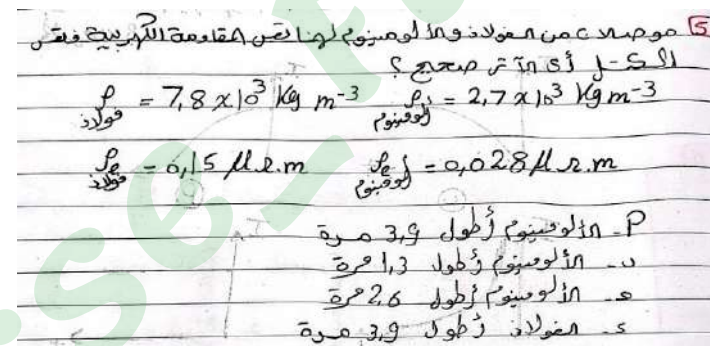 5 موصلان من الفولاذ والألومنيوم لهما نفس المقاومة الكهربية ونفس
الكتلة أى الآتى صحيح ؟
ρ فولاذ = 7,8 x 10³ kg m⁻³ ρ ألومنيوم = 2,7 x 10³ kg m⁻³
ρₑ فولاذ = 0,15 μ Ω.m ρₑ ألومنيوم = 0,028 μ Ω.m
P- الألومنيوم أطول 3,9 مرة
ب- الألومنيوم أطول 1,3 مرة
هـ- الألومنيوم أطول 2,6 مرة
د- الفولاذ أطول 3,9 مرة